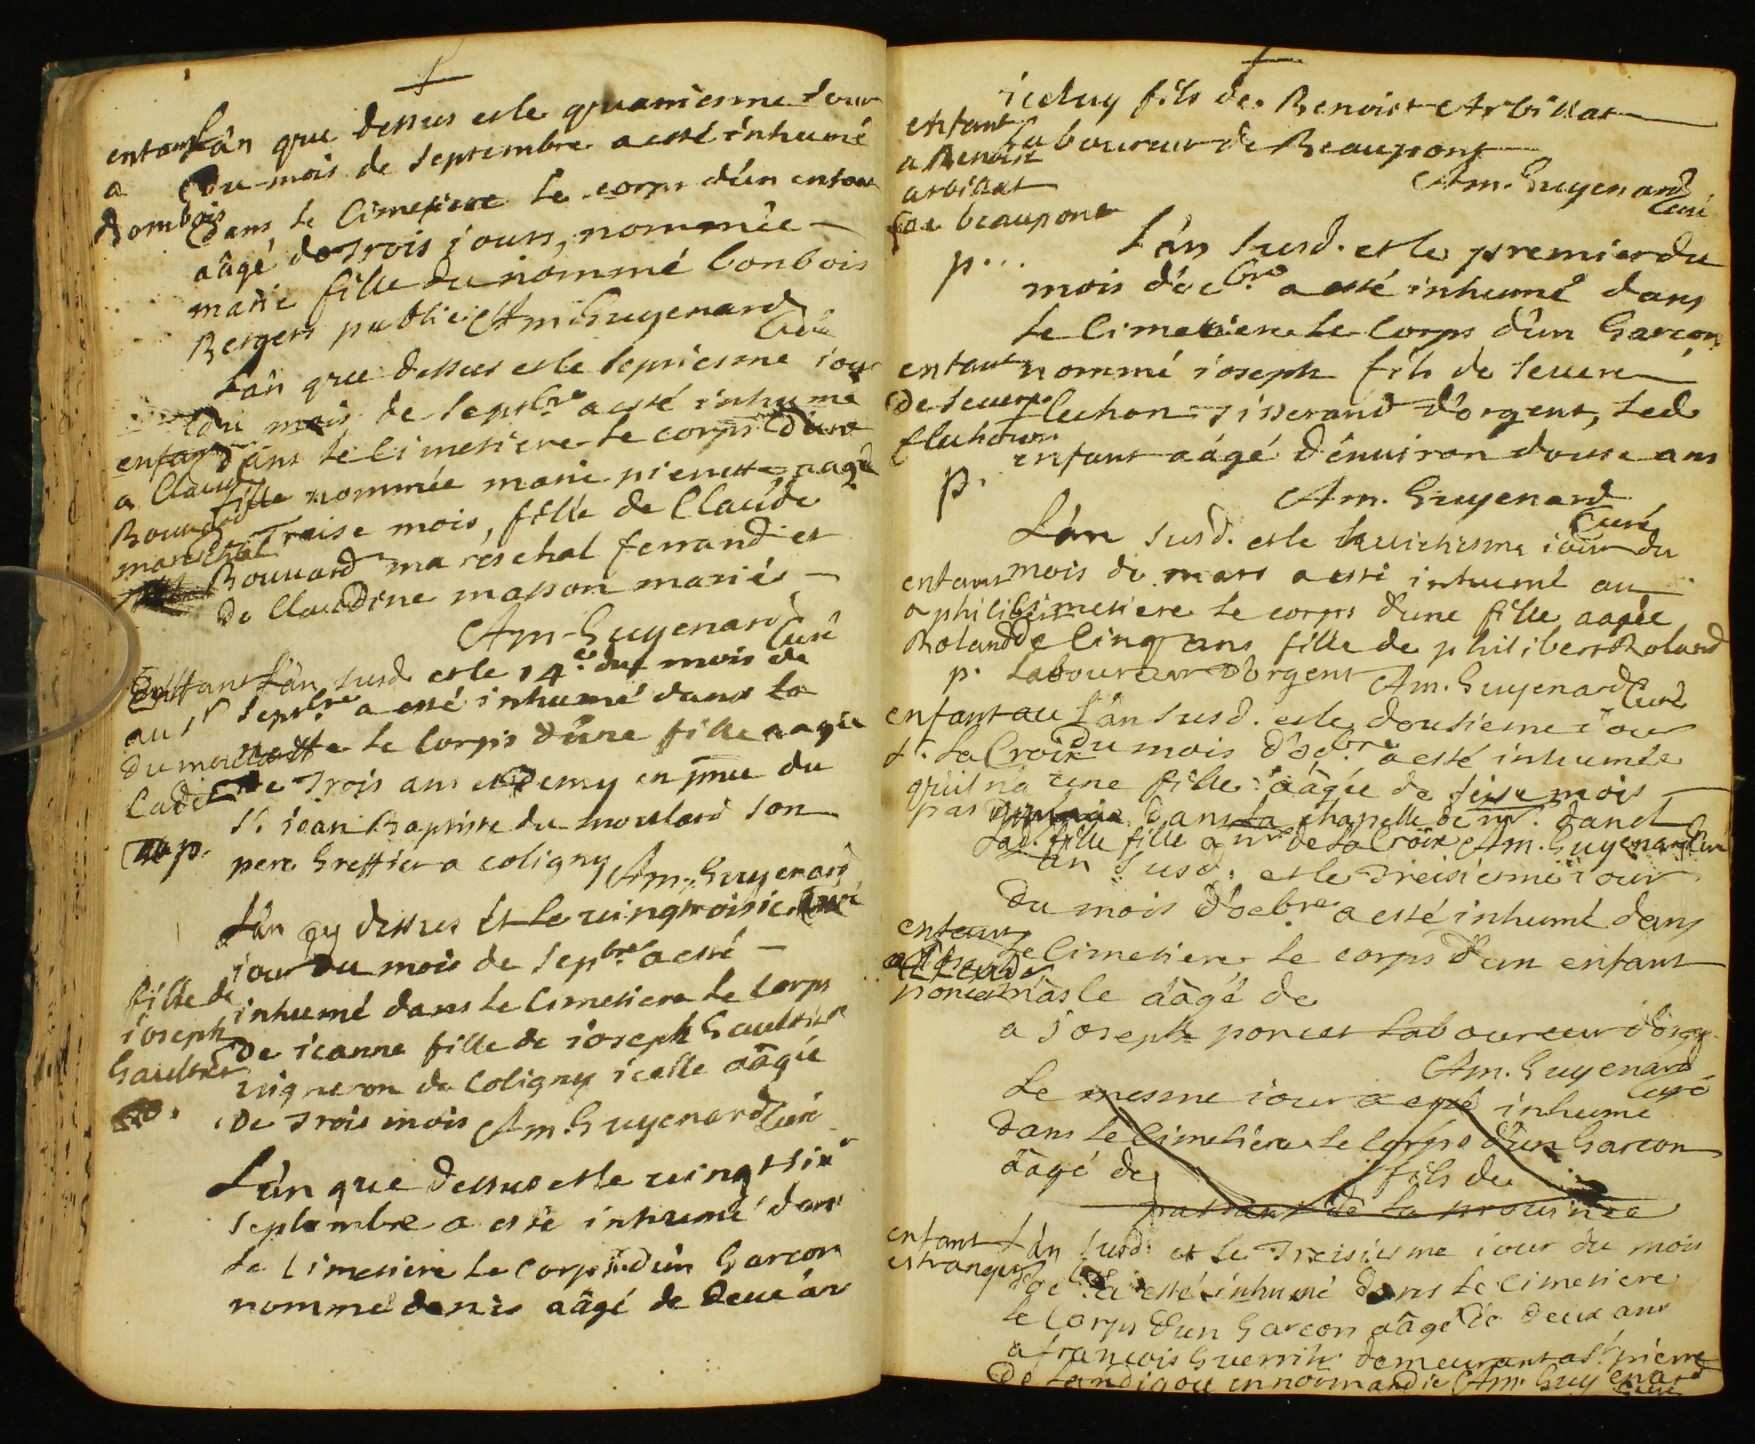 L'ân que dessus et le quatriesme Jour
du mois de septembre a esté inhumé
dans le Cimetiere le corps d'un enfant
aâgé de Trois jours, nommée
marie fille du nommé bonbois
Bergers public Am. Guyenard
Curé
enfant
a
Bombois
L'ân que dessus et le septiesme iour
du mois de septbre a esté inhumé
dans le Cimetiere le corps d'une
fille nommée marie pierrette aagé
de Treise mois, fille de Claude
Bouuard mareschal ferrand et
de Claudine masson mariés
Am. Guyenard
Curé
enfant
a Claude
Bouuard
mareschal
L'ân susd. et le 14e du mois de
septbre a esté inhumé dans la
le Corps d'une fille aagée
de Trois ans et demy en
Sr iean Baptiste du moulard son
pere Greffier a coligny Am. Guyenard
Curé
Enfant
au Sr
du moulard
Cadet
p.
L'ân cy dessus et le uingtroisie
iour du mois de Sepbre a esté
inhumé dans le Cimetiere le Corps
de ieanne fille de ioseph Gaultier
uigneron de Coligny icelle aâgée
de Trois mois Am. Guyenard Curé
fille de
ioseph
Gaultier
L'ân que dessus et le uingt six
septembre a esté inhumé dans
le Cimetiere le corps d'un Garcon
nommé denis aâgé de deux ans
iceluy fils de Benoist Arbillat
Laboureur de Beaupont
Am. Guyenard
Curé
enfant
a Benoist
arbillat
de beaupont
p...
L'ân susd. et le premier du
mois d'ocbre a esté inhumé dans
le Cimetiere le Corps d'un Garcon
nommé ioseph fils de seuere
fluchon Tisserand d'orgent, led
enfant aâgé d'enuiron douse ans
Am. Guyenard
Curé
enfant
de seuere
fluchon
p.
L'ân susd. et le huictiesme iour du
mois de mars a esté inhumé au
Cimetiere le corps d'une fille aagée
de Cinq ans fille de philibert Roland
Laboureur d'orgent Am. Guyenard
Curé
enfant
a philibert
Roland
p.
L'ân susd. et le dousieme iour
du mois d'ocbre a esté inhumée
une fille aâgée de seise mois
dans la chapelle de mr. danel
Lad. fille fille a mr de la Croix Am. Guyenard Curé
enfant au
Sr. La Croix
qu'il n'a
pas
L'an susd. et le Treisiesme iour
du mois d'ocbre a esté inhumé dans
le Cimetiere le corps d'un enfant
masle aâgé de
a ioseph poncet Laboureur d'orge
Am. Guyenard
Curé
enfant
poncet
Le mesme iour a esté inhumé
dans le Cimetiere le Corps d'un Garcon
aâgé de fils de
passant de la prouince
L'ân susd. et le Treisiesme iour du mois
d'oc. a esté inhumé dans le Cimetiere
le Corps d'un Garcon aâgé de deux ans
a françois Guerrin demeurant a St. pierre
de Landigou en normandie Am. Guyenard
Curé
enfant
estranger